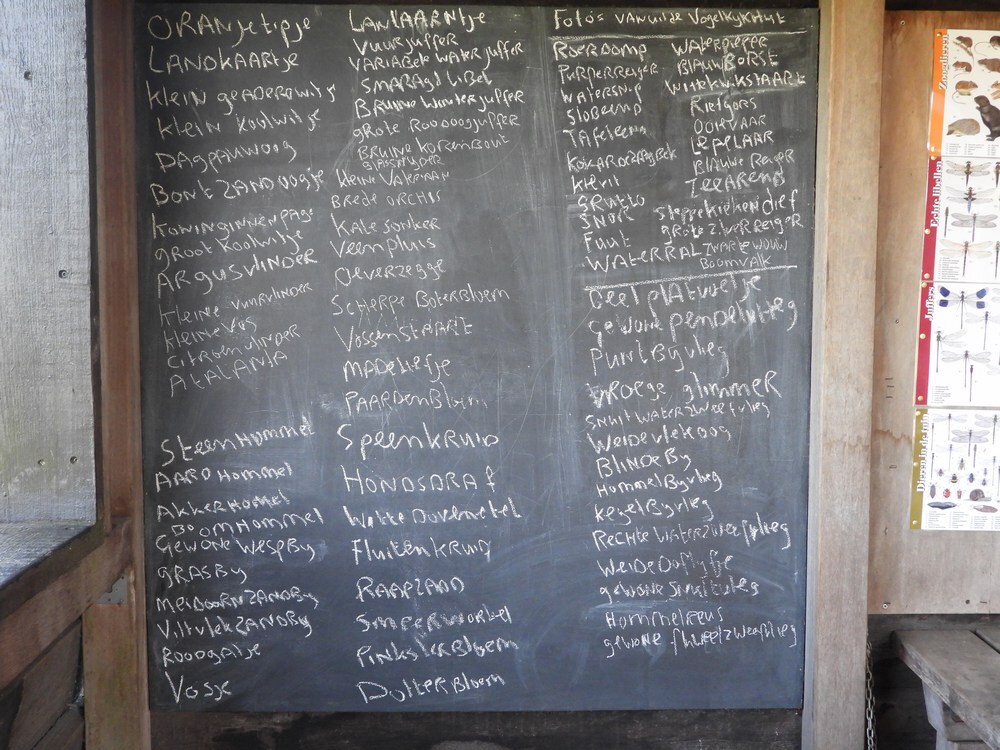 ORANjetipje
LANDKAARTje
klein geaderdwitje
klein koolwitje
DAgpauwoog
BONT ZANDOOgje
KONINGINNENPAge
gROOT koolwitje
ARgusvlinDER
kleine vuurvlinder
kleine vos
CitROENvlindeR
AtALANtA
SteenHommel
AARD Hommel
AkkerHommel
BoomHommel
Gewone WespBy
gRASBy
MeiDOORNZANDBy
ViltvlekZANDBy
ROODgatje
Vosje
LANtAARNtje
Vuurjuffer
VARIABEle WAteRjuffeR
SmaRAgdliBel
BRuine WinterjuffeR
gRote ROODOOgjuffeR
BRuine KoRenBout
glassnyder
kleine ValeRiAAN
BRede ORchis
Veenpluis
OeveRzegge
ScheRpe BoteRBloem
VosseNStAARt
MADeliefje
PAARDenBloem
SpeenkRuiD
HONDSDRAf
Witte Dovenetel
FluitenkRuid
RAApzAAD
SmeeRwoRtel
PinksteRBloem
DotteRBloem
Foto's VANuit de VogelkykHut
RoeRDomp
PuRpeRReigeR
WAteRsnip
SloBeend
TAfeleend
Kievit
gRutto
SNOR
Fuut
WATERRAL
WAteRpiepeR
BlAuwBoRSt
Witte kwikStAARt
Rietgors
OOievAAR
LepelAAR
BlAuwe ReigeR
ZeeAREND
Steppekiekendief
gRote zilveRReigeR
ZwARte wouw
BoomvAlk
Gewone pendelvlieg
PuntByvlieg
VROege glimmeR
SnuitwAteRzweefvlieg
WeidevlekOOg
BliNDeBy
HommelByvlieg
KegelByvlieg
RechtewAteRzweefvlieg
WeideDoflyfje
gewone Snuitvlieg
HommelReus
gewone fluweelzweefvlieg
Zoogdieren
Echte libellen
Juffers
Dieren in de tuin